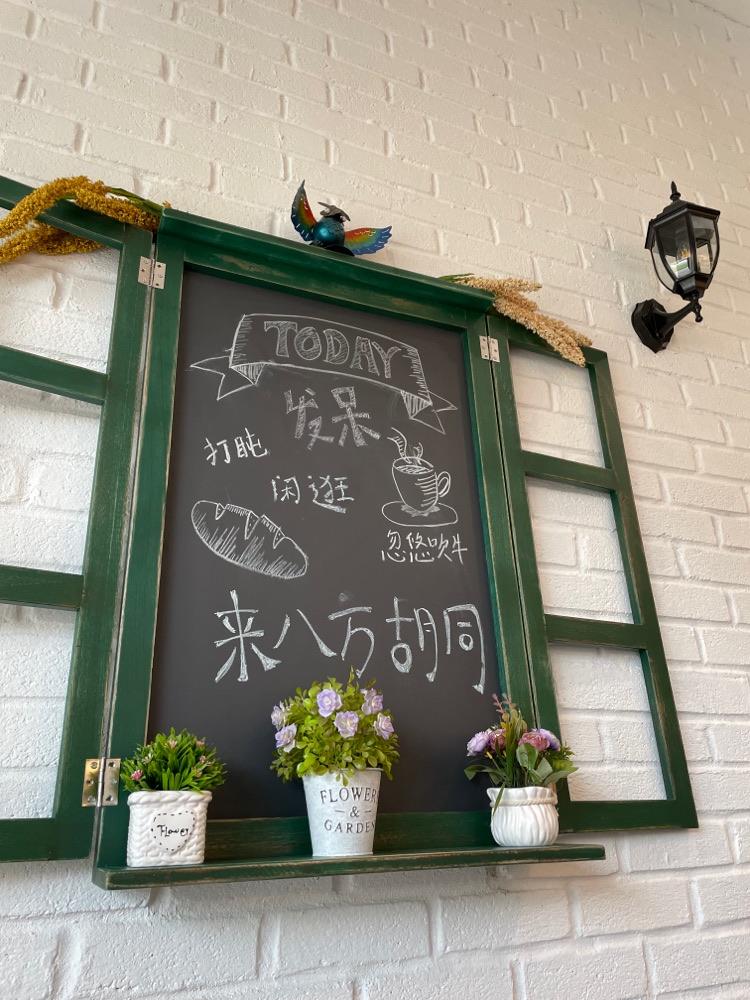 TODAY
发呆
打盹
闲逛
忽悠吹牛
来八方胡同
Flower
FLOWER
&
GARDEN